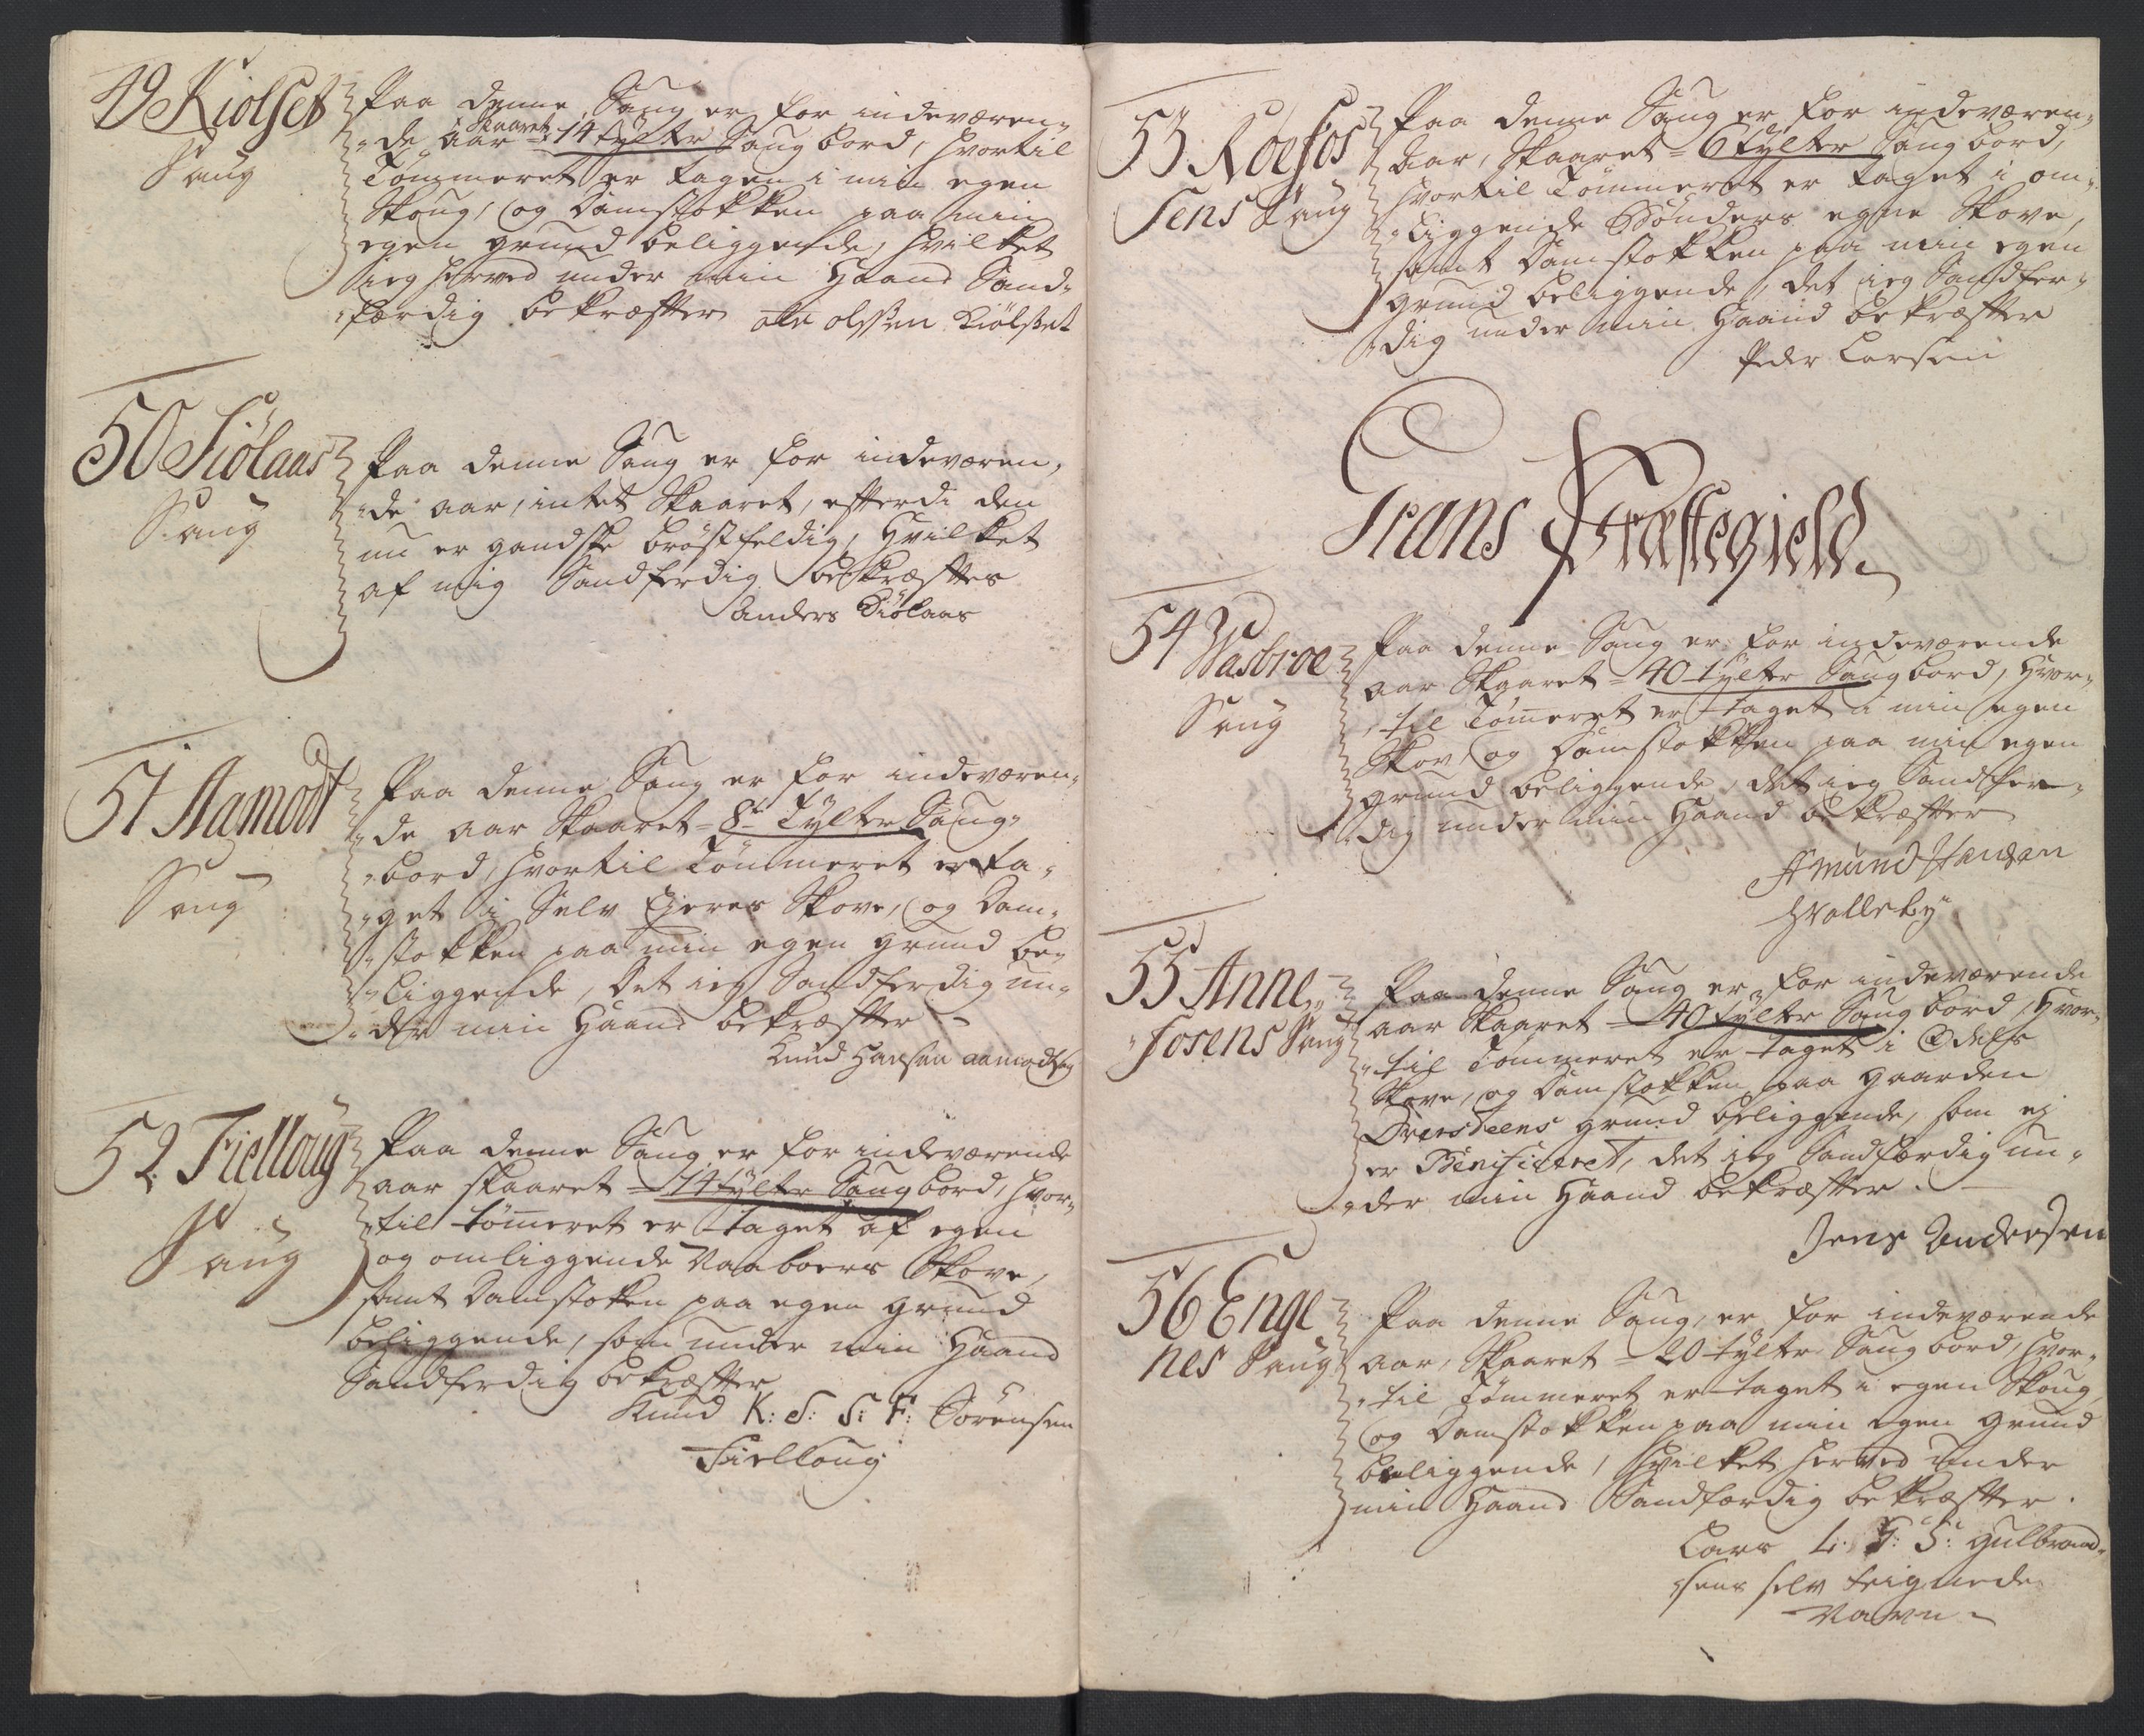 49 Kiolset
Saug
Paa denne Saug er for indeværen-
de aar skaaret 14 tylter Saugbord, hvortil
Tømmeret er tagen i min egen
Skoug, og Damstokken paa min
egen grund beliggende, hvilket
ieg herved under min Haand Sand-
færdig bekræfter ole olssen Kiölset
50 Siölaas
Saug
Paa denne Saug er for indeværen-
de aar, intet Skaaret, efterdi den
nu er gandske bröstfeldig, Hvilket
af mig Sandferdig bekræftes
Anders Siölaas
51 Aamodt
Saug
Paa denne Saug er for indeværen-
de aar Skaaret = 8te Tylter Saug-
bord, hvortil Tömmeret er ta-
get i Selv Eyeres Skove, og Dam-
stokken paa min egen grund be-
liggende, Det ieg Sandferdig un-
der min Haand bekræfter
Knud Hansen aamodt
52 Fielloug
Saug
Paa denne Saug er for indeværende
aar skaaret = 14 tylter Saugbord, hvor-
til tömeret er taget af egen
og omliggende Naaboers Skove,
samt Damstoken paa egen grund
beliggende, som under min Haand
Sandferdig bekræfter
Knud K: S: S: F: Sörensen
Fielloug
53 Roefos
sens Saug
Paa denne Saug er for indeværen-
Aar, Skaaret = 6 tylter Saugbord,
hvortil Tömmeret er taget i om-
liggende Bönders egne Skove,
samt Damstokken paa min egen
grund beliggende, det ieg Sandfer-
dig under min Haand bekræfter
Peder Larsen
Grans Præstegield
54 Wasbroe
Saug
Paa denne Saug er for indeværende
aar Skaaret = 40 tylter Saugbord, Hvor-
til Tömeret er taget i min egen
Skov, og Damstokken paa min egen
grund beliggende, det ieg Sandfer-
dig under min Haand bekræfter
Amund Hansen
Hvalleby
55 Anne-
fosens Saug
Paa denne Saug er for indeværende
aar Skaaret = 40 tylter Saugbord, Hvor-
til Tömmeret er taget i Odels
Skove, og Damstokken paa gaarden
grund beliggende, som ej
er Benificeret, det ieg Sandfærdig un-
der min Haand bekræfter.
Jens Andersen
56 Enge
nes Saug
Paa denne Saug, er for indeværende
aar, Skaaret = 20 tylter Saugbord, hvor-
til Tömmeret er taget i egen Skoug
og Damstokken paa min egen grund
beliggende, hvilket herved under
min Haand Sandfærdig bekræfter.
Lars L: G: S: Gulbrand-
sens selv teignede
Navn